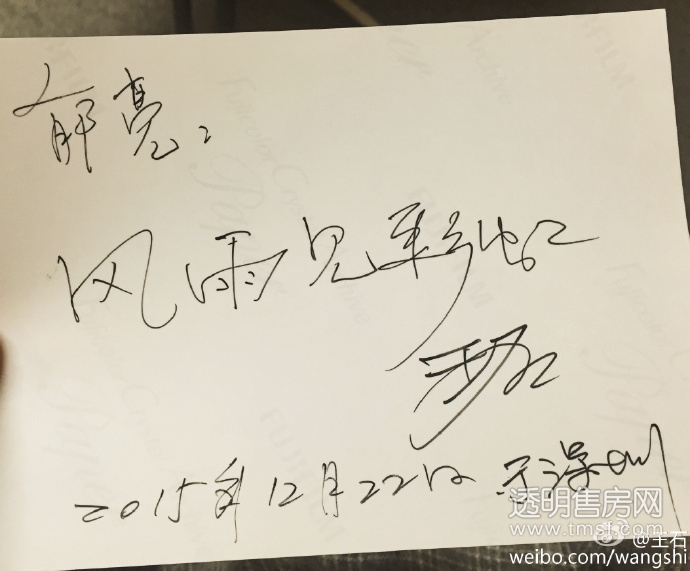 郁亮：
风雨见彩虹
王石
2015年12月22日 于深圳
透明售房网
www.tmsf.com
@王石
weibo.com/wangshi